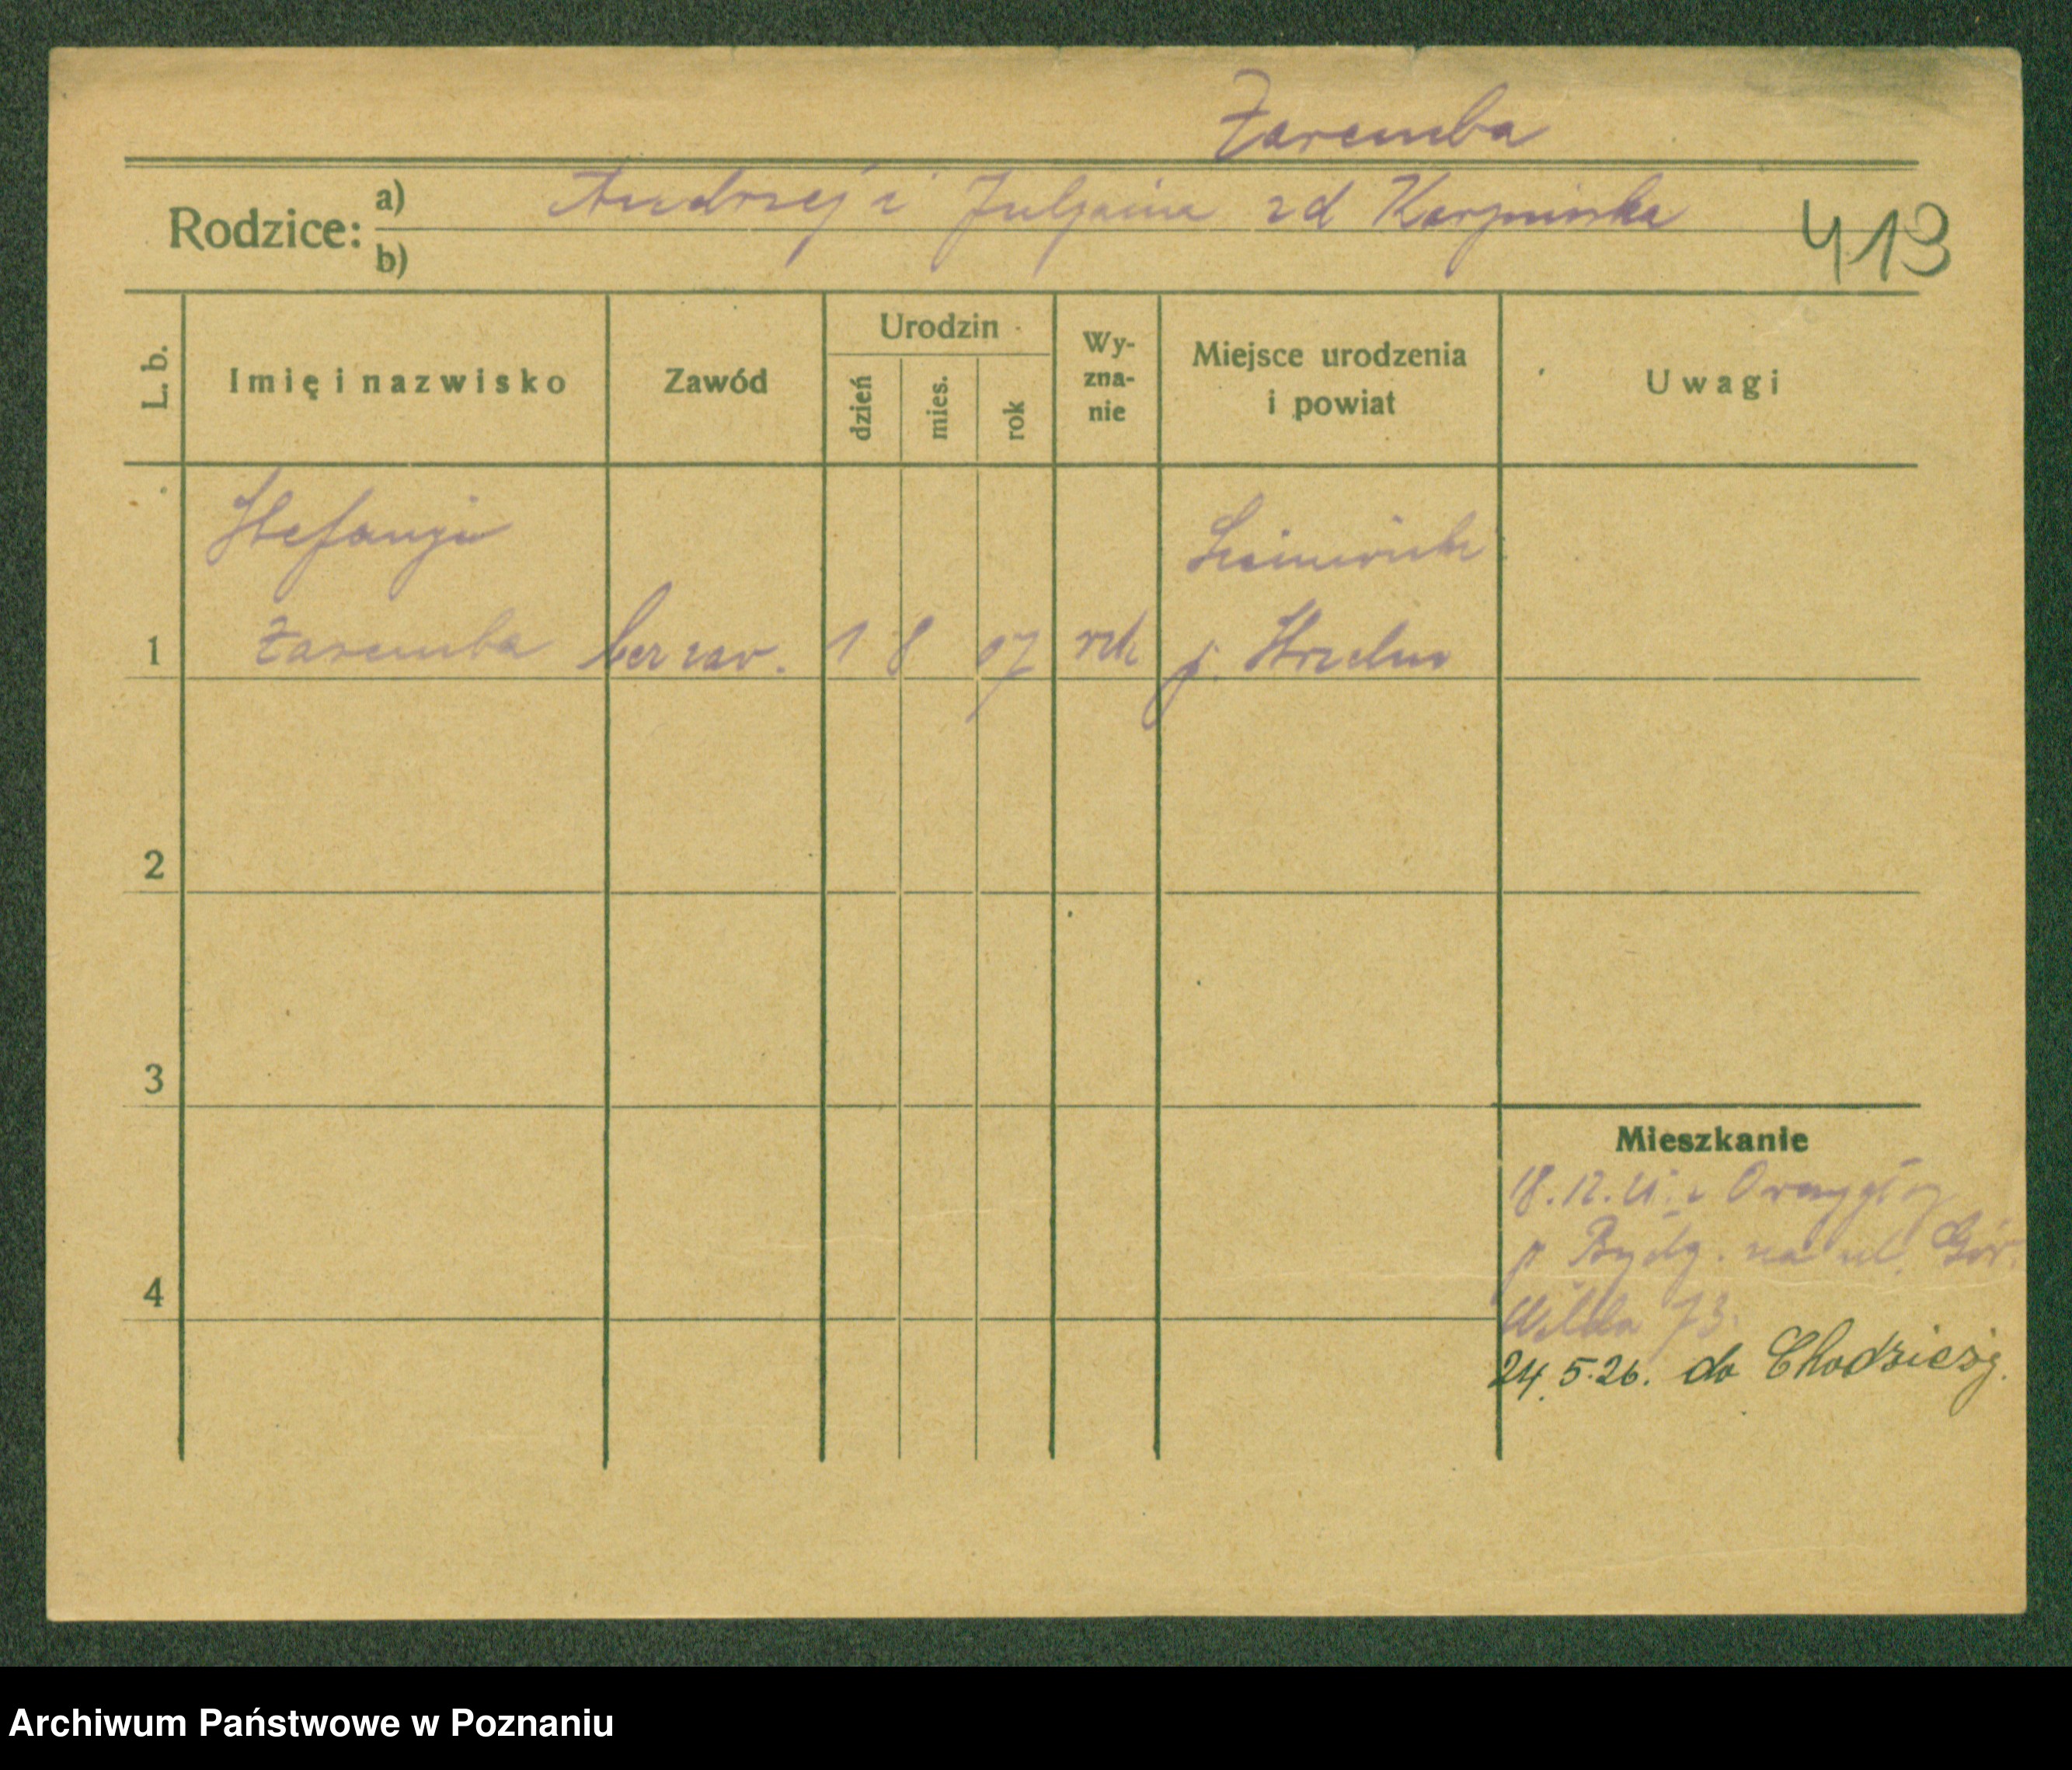 Zaremba
Rodzice: a) Andrzej i Julianna zd Karpinska
b)
413
L. b.
Imię i nazwisko
Zawód
Urodzin
dzień
mies.
rok
Wy-
zna-
nie
Miejsce urodzenia
i powiat
Uwagi
Stefanja
1 Zaremba bez zaw. 1 8 07 rzk p. Strzelno
2
3
4
Mieszkanie
18.12.
p Bydg. na ul. Gór.
Wilda 73.
24.5.26. do Chodzieży.
Archiwum Państwowe w Poznaniu